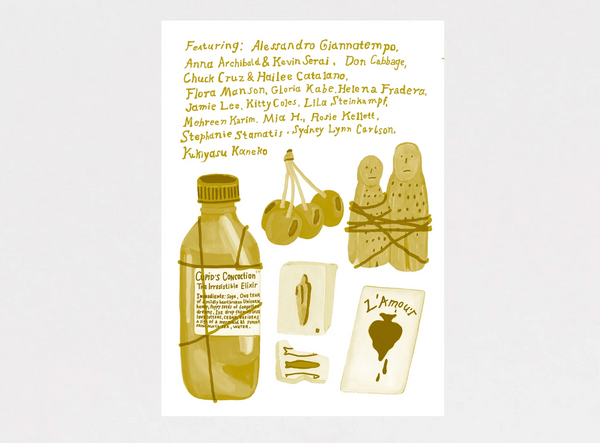 Featuring: Alessandro Giannatempo,
Anna Archibald & Kevin Serai, Don Cabbage,
Chuck Cruz & Hailee Catalano,
Flora Manson, Gloria Kabe, Helena Fradera,
Jamie Lee, Kitty Coles, Lila Steinkampf,
Mohreen Karim, Mia H., Rosie Kellett,
Stephanie Stamatis . Sydney Lynn Carlson,
Yukiyasu Kaneko
Cupid's Concoction
The Irresistible Elixir
Ingredients: Sage, One tear
L'Amour